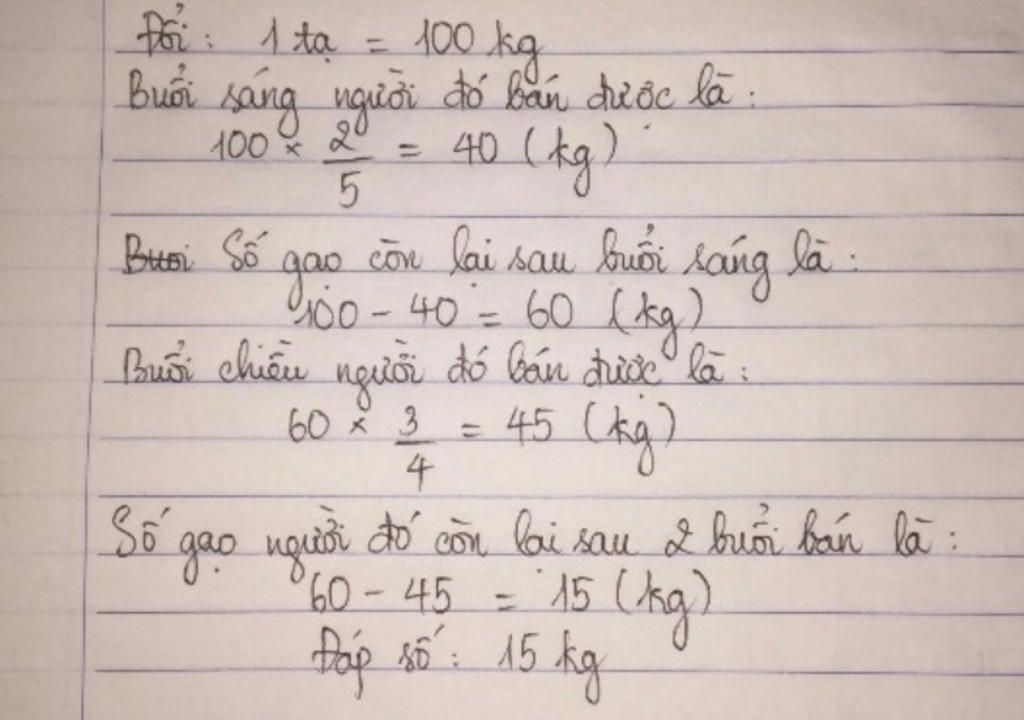 Đổi: 1 tạ = 100 kg
Buổi sáng người đó bán được là:
100 × 2/5 = 40 (kg)
Buổi Số gạo còn lại sau buổi sáng là:
100 - 40 = 60 (kg)
Buổi chiều người đó bán được là:
60 × 3/4 = 45 (kg)
Số gạo người đó còn lại sau 2 buổi bán là:
60 - 45 = 15 (kg)
Đáp số: 15 kg